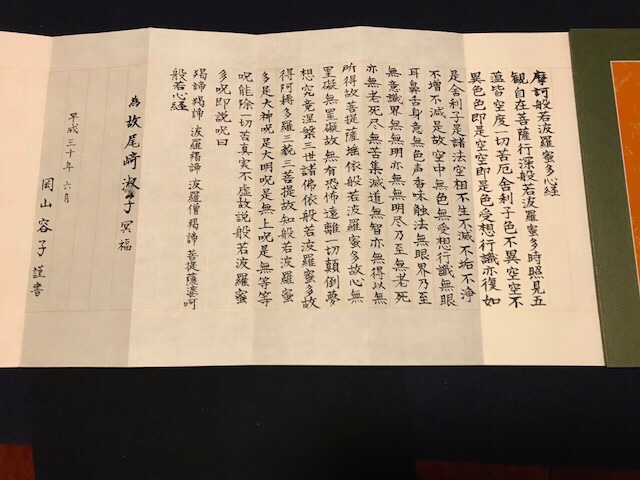 摩訶般若波羅蜜多心経
観自在菩薩行深般若波羅蜜多時照見五
蘊皆空度一切苦厄舎利子色不異空空不
異色色即是空空即是色受想行識亦復如
是舎利子是諸法空相不生不滅不垢不浄
不増不減是故空中無色無受想行識無眼
耳鼻舌身意無色声香味触法無眼界乃至
無意識界無無明亦無無明尽乃至無老死
亦無老死尽無苦集滅道無智亦無得以無
所得故菩提薩埵依般若波羅蜜多故心無
罣礙無罣礙故無有恐怖遠離一切顛倒夢
想究竟涅槃三世諸佛依般若波羅蜜多故
得阿耨多羅三藐三菩提故知般若波羅蜜
多是大神呪是大明呪是無上呪是無等等
呪能除一切苦真実不虚故説般若波羅蜜
多呪即説呪曰
羯諦 羯諦 波羅羯諦 波羅僧羯諦 菩提薩婆訶
般若心経
為 故尾崎淑子 冥福
平成三十年 六月
岡山容子 謹書